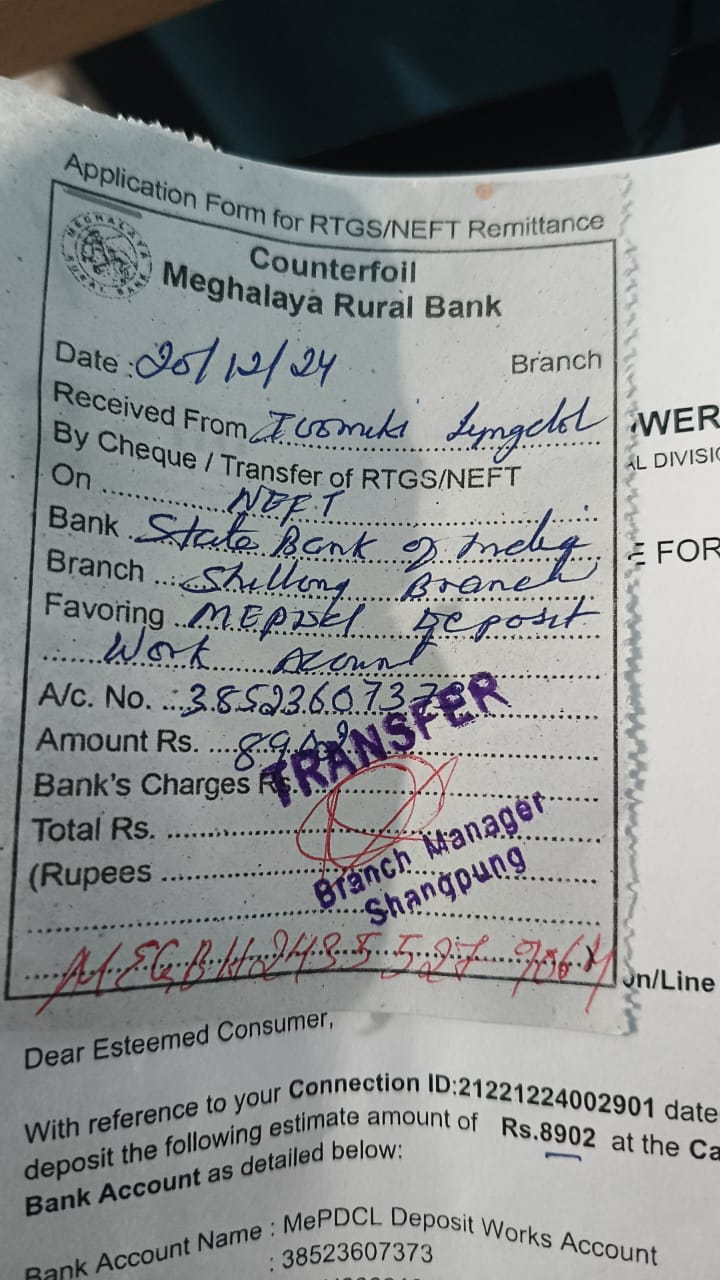 Application Form for RTGS/NEFT Remittance
MEGHALAYA RURAL BANK
Counterfoil
Meghalaya Rural Bank
Date : 20/12/24 Branch
Received From Lyngdoh
By Cheque / Transfer of RTGS/NEFT
On NEFT
Bank State Bank of India
Branch Shillong Branch
Favoring MEPDCL Deposit
Work Acount
A/c. No. 38523607373
Amount Rs. 8902
TRANSFER
Bank's Charges Rs
Total Rs.
(Rupees
Branch Manager
Shangpung
WER
AL DIVISIO
E FOR
on/Line
Dear Esteemed Consumer,
With reference to your Connection ID:21221224002901 date
deposit the following estimate amount of Rs.8902 at the Ca
Bank Account as detailed below:
Bank Account Name : MePDCL Deposit Works Account
: 38523607373